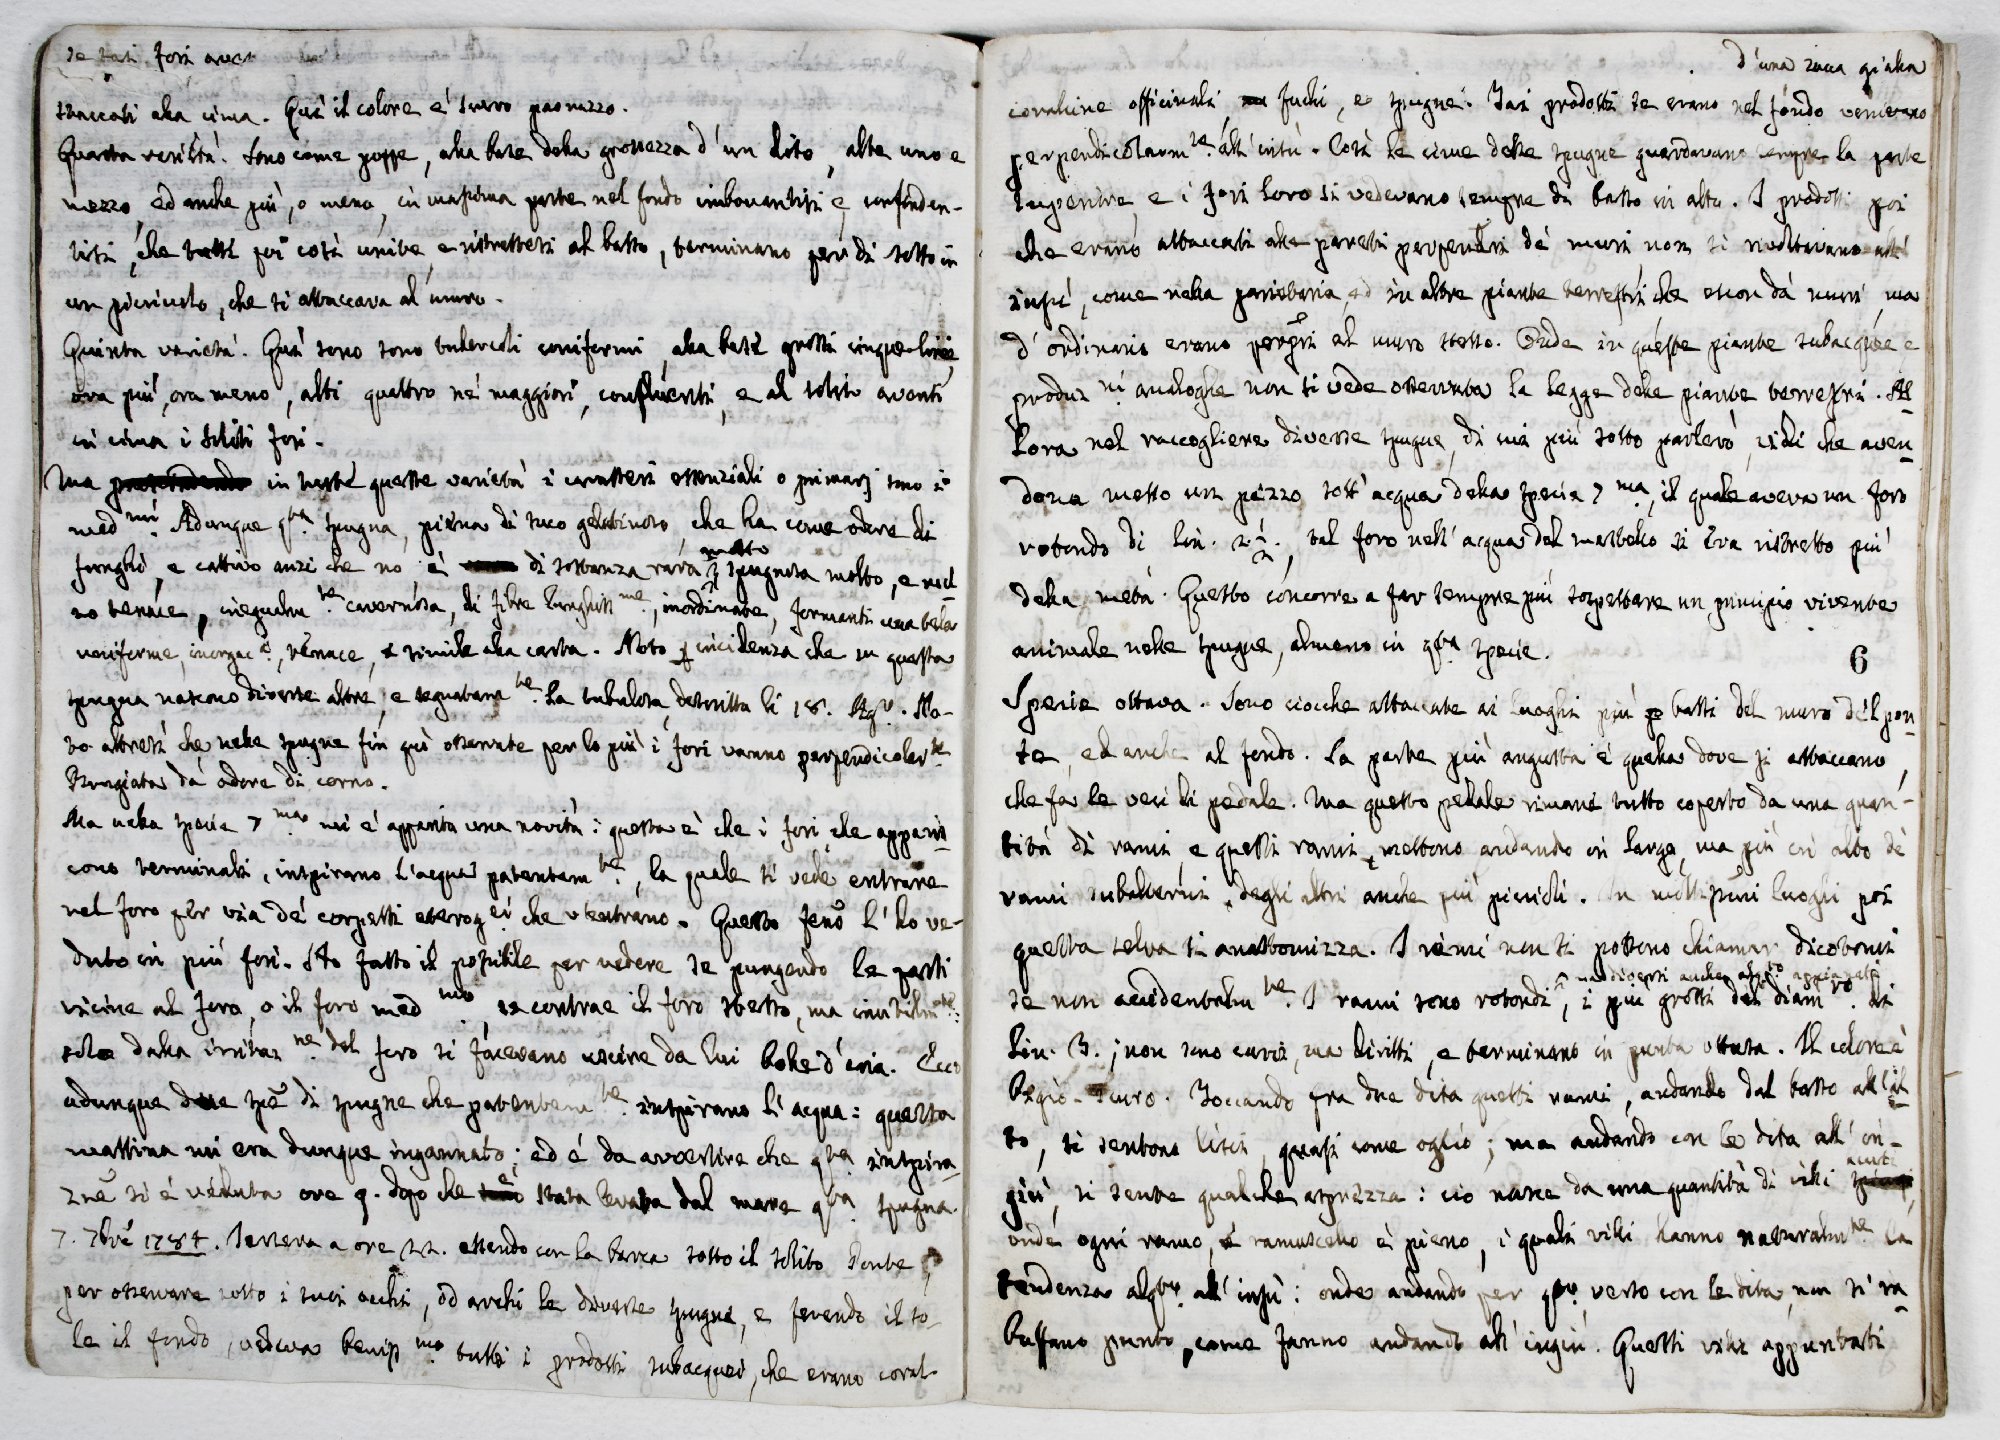 se tali fori aves
staccati alla cima. Qui il colore è scuro paonazzo.
Quarta verietà. Sono come poppe, alla base della grossezza d'un dito, alte uno e
mezzo, ed anche più, o meno, in massima parte nel fondo imboccantisi e confonden-
tisi, che tutte poi così unite, e ristrettesi al basso, terminano però di sotto in
un picciuolo, che si attaccava al muro.
Quinta varietà. Qui sono sono tubercoli coniformi, alla base grossi cinque linee,
ora più, ora meno, alti quattro ne' maggiori, confluenti, e al solito aventi
in cima i soliti fori.
Ma in tutte queste varietà i caratteri essenziali o primarj sono i
med.mi Adunque q.ta spugna, piena di suco gelatinoso, che ha come odore di
funghi, e cattivo anzi che no è di sostanza rara molto e spugnosa molto, e med
so tenace, inegualm.te cavernosa, di fibre lunghiss.me, inordinate, formanti una tela
uniforme, tenace, e simile alla carta. Noto p incidenza che su questa
spugna nascono diverse altre, e segnatam.te la tubulosa, descritta li 18. Ag.o. No-
to altresì che nelle spugne fin quì osservate per lo più i fori vanno perpendicolar.te
Bruciata dà odore di corno.
Ma nella specie 7.ma mi è apparita una novità: questa è che i fori, che appari
scono terminali, inspirano l'acqua patentem.te, la quale si vede entrare
nel foro per via de' corpetti eterog.ei che v'entrano. Questo fenõ l'ho ve-
duto in più fori. Ho fatto il possibile per vedere se pungendo le parti
vicine al foro, o il foro med.mo, si contrae il foro stesso, ma inutilm.te:
solo dalla irritaz.ne del foro si facevano uscire da lui bolle d'aria. Ecco
adunque due spẽ di spugne che patentem.te inspirano l'acqua: questa
mattina mi era dunque ingannato; ed è da avvertire che q.ta inspira-
znẽ si è veduta ore 9. dopo che è stata levata dal mare q.ta spugna.
7. 7bre 1784. Jersera a ore 22. essendo con la barca sotto il solito Ponte
per osservare sotto i suoi occhi, od archi le diverse spugne, e ferendo il so-
le il fondo, vedeva beniss.mo tutti i prodotti subacquei, che erano coral-
d'una zucca gialla
coralline officinali, fuchi, e spugne. Tali prodotti se erano nel fondo venivano
perpendicolarm.te all'insù. Così le cime delle spugne guardavano sempre la parte
superiore, e i fori loro si vedevano sempre da basso in alto. I prodotti poi
che erano attaccati alle pareti perpendri de' muri non si rivoltavano all'
insù, come nella parietaria, ed in altre piante terrestri che escon da' muri, ma
d'ordinario erano perpẽri al muro stesso. Onde in queste piante subacquee e
produz.ni analoghe non si vede osservata la legge delle piante terrestri. Al
lora nel raccogliere diverse spugne, di cui più sotto parlerò, vidi che aven
done messo un pezzo sott'acqua della specie 7.ma, il quale aveva un foro
rotondo di lin. 2 1/2, tal foro nell'acqua del mastello si era ristretto più
della metà. Questo concorre a far sempre più sospettare un principio vivente
animale nelle spugne, almeno in q.ta specie.
6
Specie ottava. Sono ciocche attaccate ai luoghi più bassi del muro del pon
te, ed anche al fondo. La parte più angusta è quella dove si attaccano,
che fa le veci di pedale. Ma questo pedale rimane tutto coperto da una quan-
tità di rami, e questi rami mettono andando in largo, ma più in alto de'
rami subalterni, degli altri anche più piccioli. In moltissimi luoghi poi
questa selva si anastomizza. I rami non si possono chiamar dicotomi
se non accidentalm.te. I rami sono rotondi, i più grossi del diam.ro di
lin. 3.; non sono curvi, ma diritti, e terminano in punta ottusa. Il colore è
bigio-scuro. Toccando fra due dita questi rami, andando dal basso all'al
to, si sentono lisci, quasi come oglio; ma andando con le dita all'in-
giù, si sente qualche asprezza: ciò nasce da una quantità di villi acuti,
onde ogni ramo, e ramuscello è pieno, i quali villi hanno naturalm.te la
tendenza al q.to all'insù: onde andando per q.to verso con le dita, non si ra
buffano punto, come fanno andando all'ingiù. Questi villi appuntati